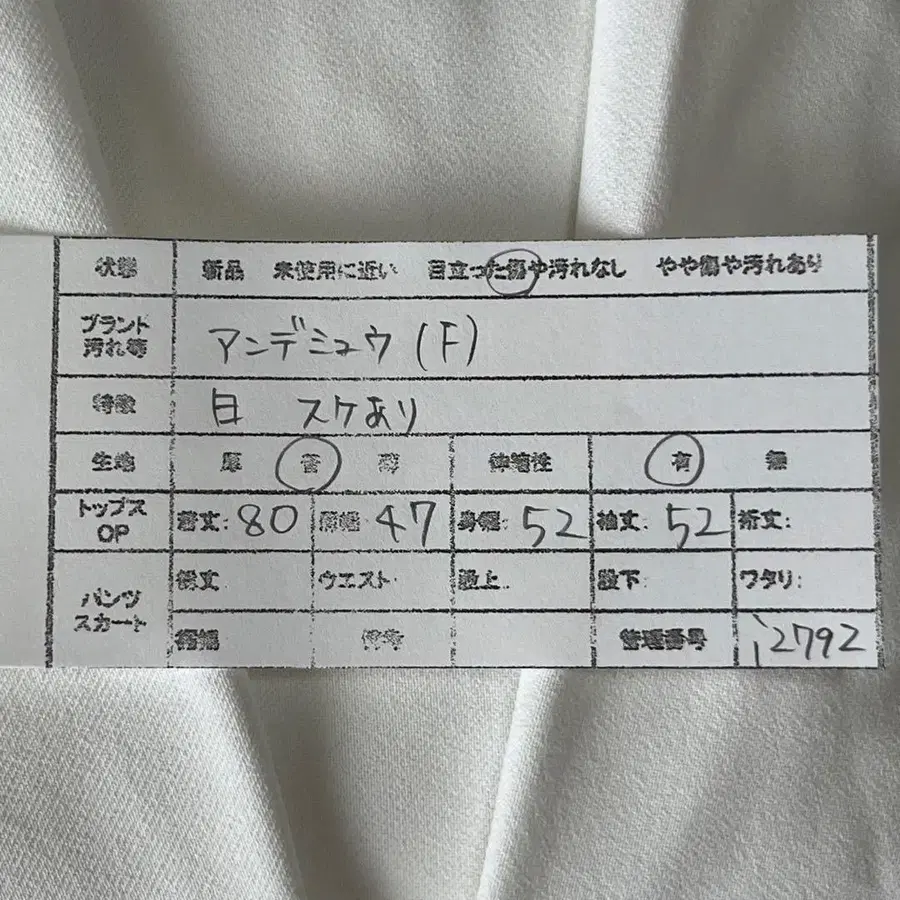 状態 新品 未使用に近い 目立った傷や汚れなし やや傷や汚れあり
ブランド 汚れ等 アンデミュウ(F)
特徴 白 スケあり
生地 厚 普 薄 伸縮性 有 無
トップス OP 着丈:80 肩幅:47 身幅:52 袖丈:52 裄丈:
パンツ スカート 総丈 ウエスト 股上 股下 ワタリ:
裾幅 備考 管理番号 i2792